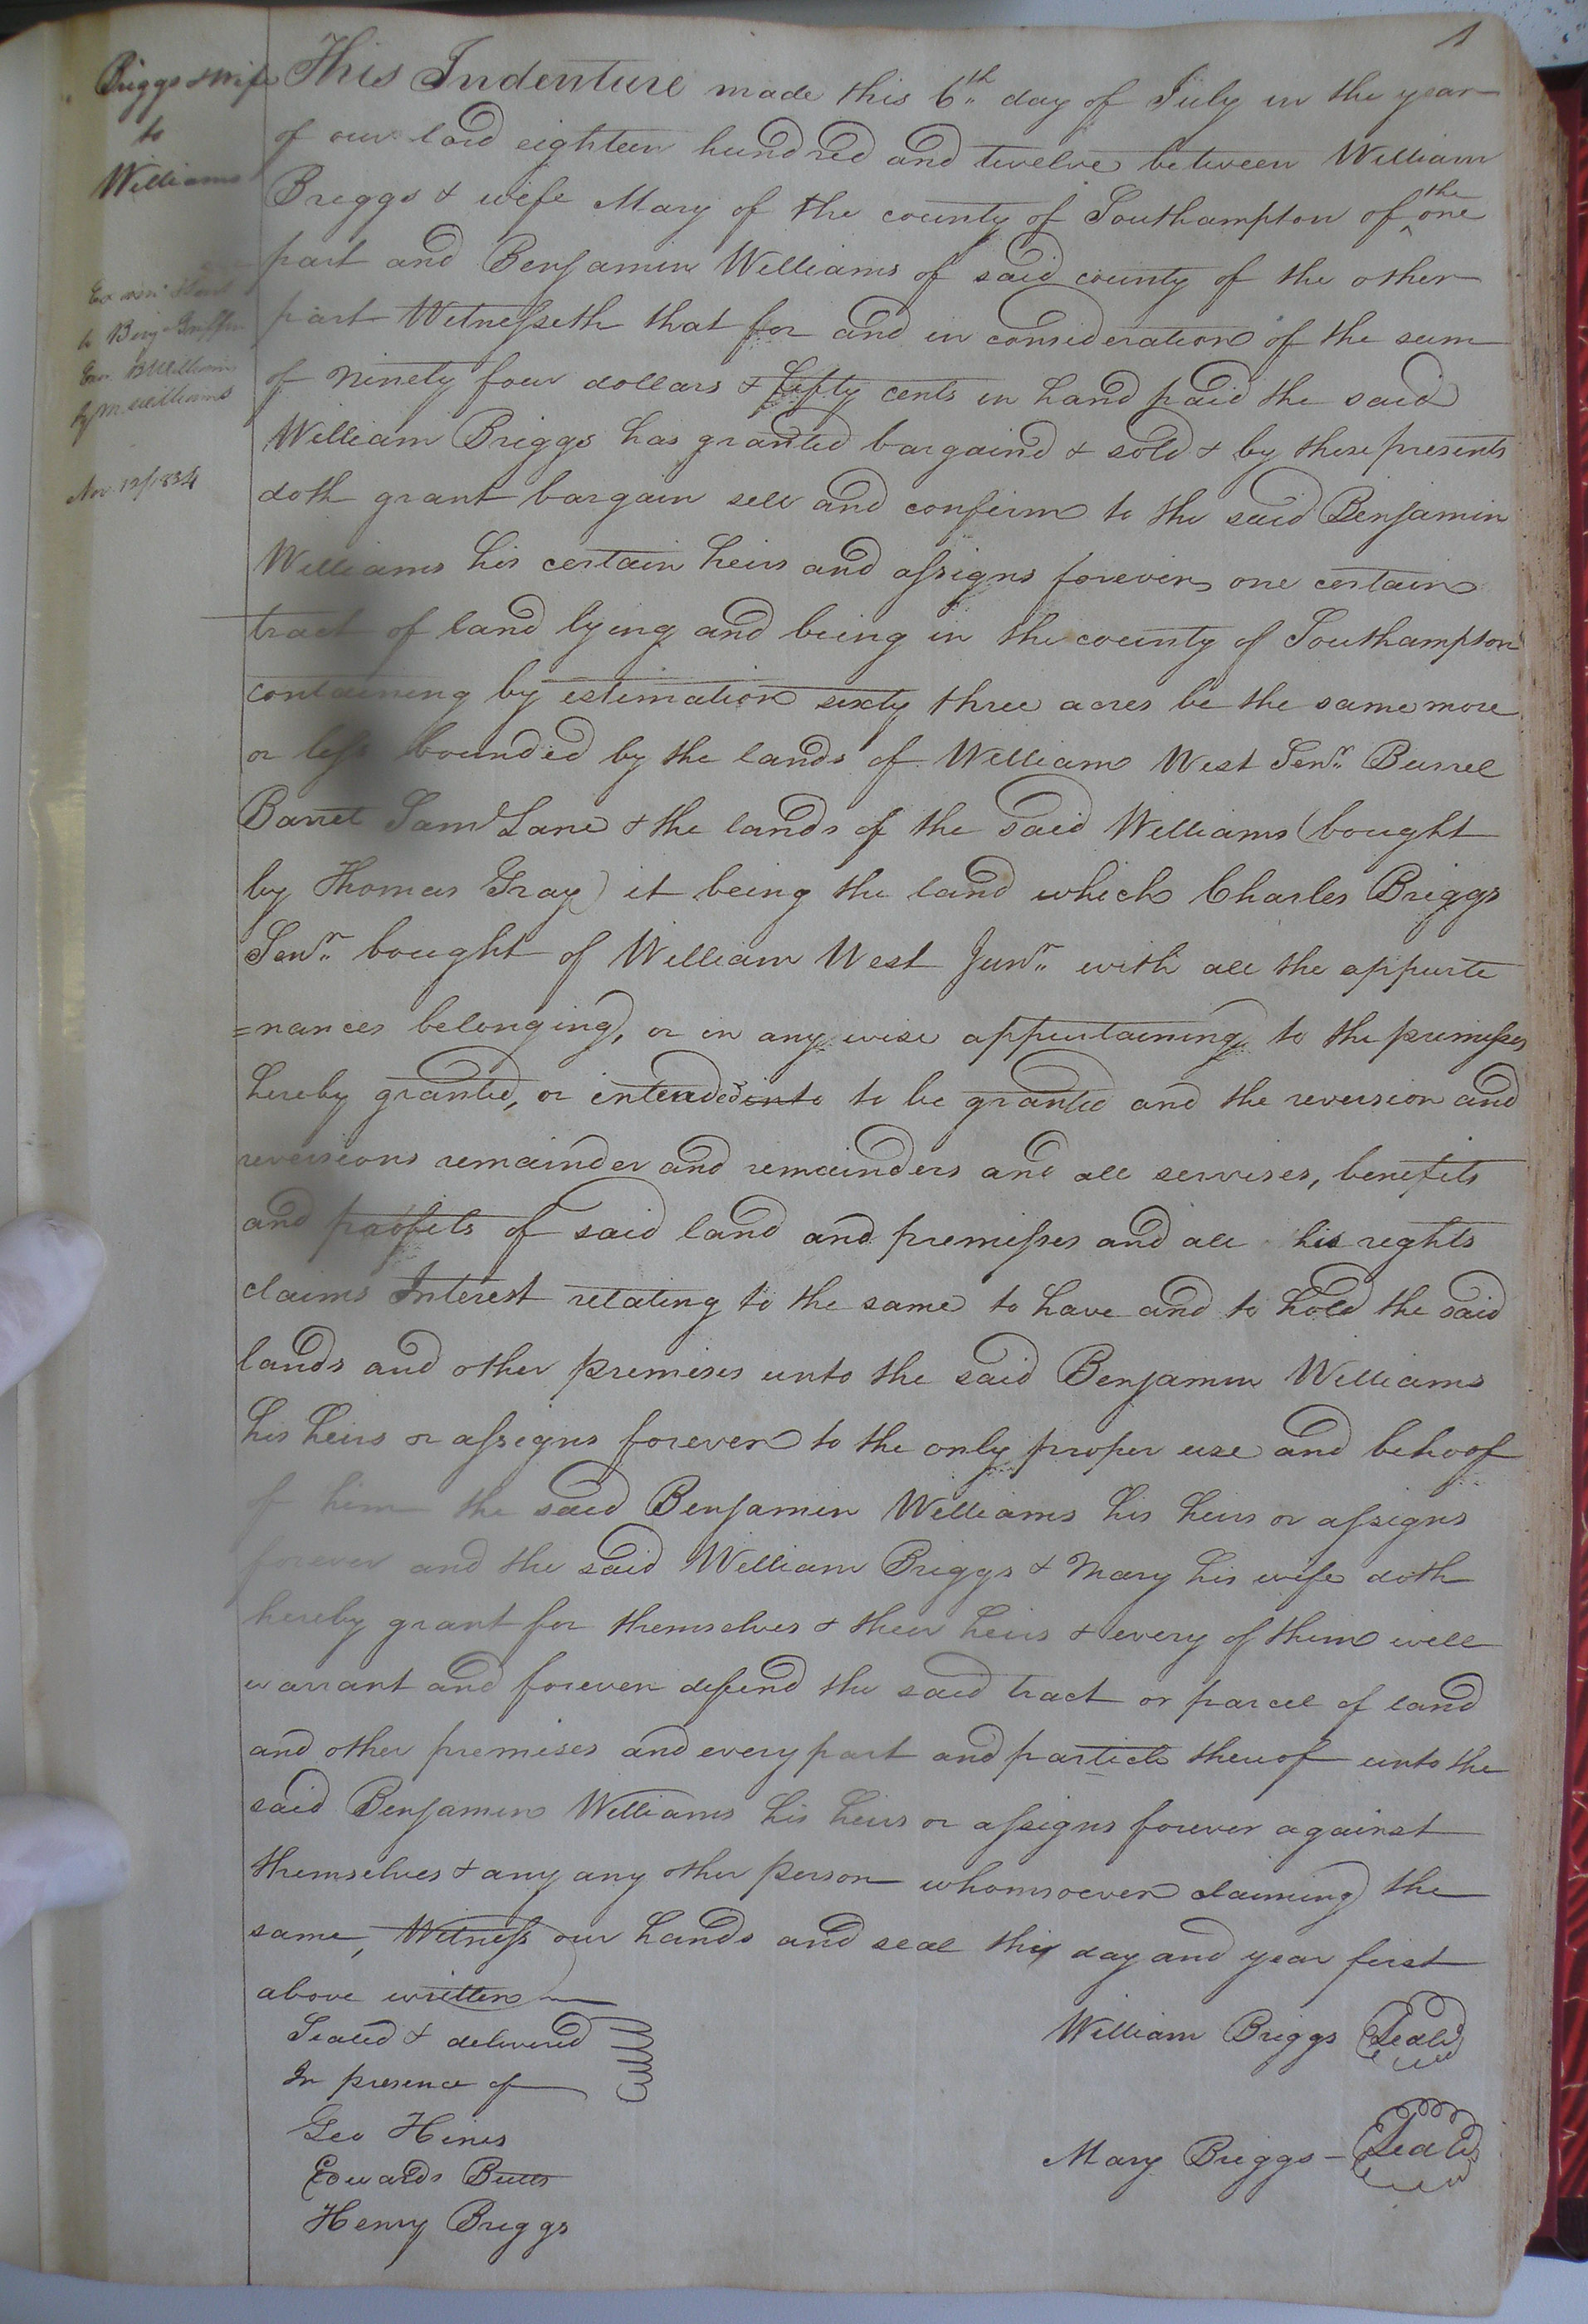 1
Briggs & Wife
to
Williams
to Benj Griffin
Nov. 12/1834
This Indenture made this 6th day of July in the year
of our lord eighteen hundred and twelve between William
Briggs & wife Mary of the county of Southampton of the one
part and Benjamin Williams of said county of the other
part Witnesseth that for and in consideration of the sum
of ninety four dollars & fifty cents in hand paid the said
William Briggs has granted bargaind & sold & by these presents
doth grant bargain sell and confirm to the said Benjamin
Williams his certain heirs and assigns forever one certain
tract of land lying and being in the county of Southampton
containing by estimation sixty three acres be the same more
or less bounded by the lands of William West Senr. Burrel
Barret Saml Lane & the lands of the said Williams (bought
by Thomas Gray) it being the land which Charles Briggs
Senr. bought of William West Junr. with all the appurte
=nances belonging, or in any wise appurtaining to the premisses
hereby granted, or intended into to be granted and the reversion and
reversions remainder and remainders and all servises, benefits
and proffits of said land and premisses and all his rights
claims Interest relating to the same to have and to hold the said
lands and other premises unto the said Benjamin Williams
his heirs or assigns forever to the only proper use and behoof
of him the said Benjamin Williams his heirs or assigns
forever and the said William Briggs & Mary his wife doth
hereby grant for themselves & their heirs & every of them will
warrant and forever defend the said tract or parcel of land
and other premises and every part and particle thereof unto the
said Benjamin Williams his heirs or assigns forever against
themselves & any any other person whomsoever claiming the
same, Witness our hands and seal this day and year first
above written
Sealed & delivered
In presence of
Geo Hines
Edwards Butts
Henry Briggs
William Briggs Seal
Mary Briggs - Seal